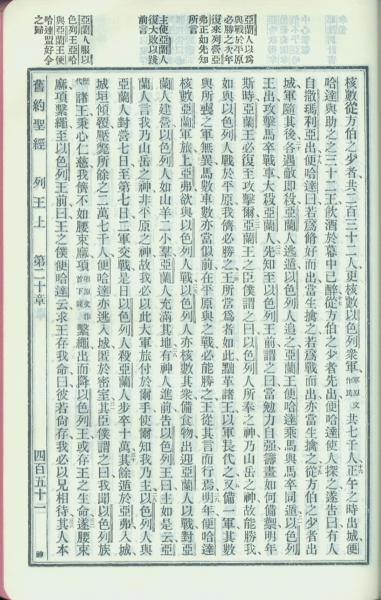 亞蘭人以爲
與戰於平原
必勝之次年
復來列營亞
弗正如先知
所言
主使亞蘭人
復大敗以踐
前言
亞蘭人服以
色列王亞哈
與亞蘭王便
哈達盟好令
之歸
核數從方伯之少者共二百三十二人更核數以色列衆軍共七千人正午之時出城便
哈達與助之之三十二王飮酒於幕中已醉從方伯之少者先出便哈達使人探之遂告曰有人
自撒瑪利亞出便哈達曰若爲脩好而出當生擒之若爲戰而出亦當生擒之從方伯之少者出
城軍隨其後各遇敵卽殺亞蘭人遁逃以色列人追之亞蘭王便哈達乘馬與馬卒同遁以色列
王出攻擊馬卒戰車大殺亞蘭人先知至以色列王前謂之曰當勉力自强籌畫如何備禦明年
斯時亞蘭王必復至攻擊爾亞蘭王之臣僕謂之曰以色列人所奉之神乃山岳之神故能勝我
如與以色列人戰於平原我儕必勝之王所當爲者如此黜革諸王以軍長代之又備一軍其數
與所喪之軍無異馬數車數亦當似前在平原與之戰必能勝之王從其言而行焉明年便哈達
核數亞蘭軍旅上亞弗欲與以色列人戰以色列人亦核數其衆備食物出迎亞蘭人以戰對亞
蘭人建營以色列人如山羊二小羣亞蘭人充滿其地有神人進前告以色列王曰主如是云亞
蘭人言我乃山岳之神非平原之神故我必以此大軍旅付於爾手使爾知我乃主以色列人與
亞蘭人對營七日至第七日二軍交戰是日以色列人殺亞蘭人步卒十萬其餘遁於亞弗入城
城垣傾覆壓斃所餘之二萬七千人便哈達亦逃入城匿於密室其臣僕謂之曰我聞以色列族
諸王秉心仁慈我儕不如腰束麻項繫繩出而降以色列王或存王之生命遂腰束
麻項繫繩至以色列王前曰王之僕便哈達云求王存我命曰彼若尙存我必以兄相待其人本
舊約聖經 列王上 第二十章 四百五十二 神